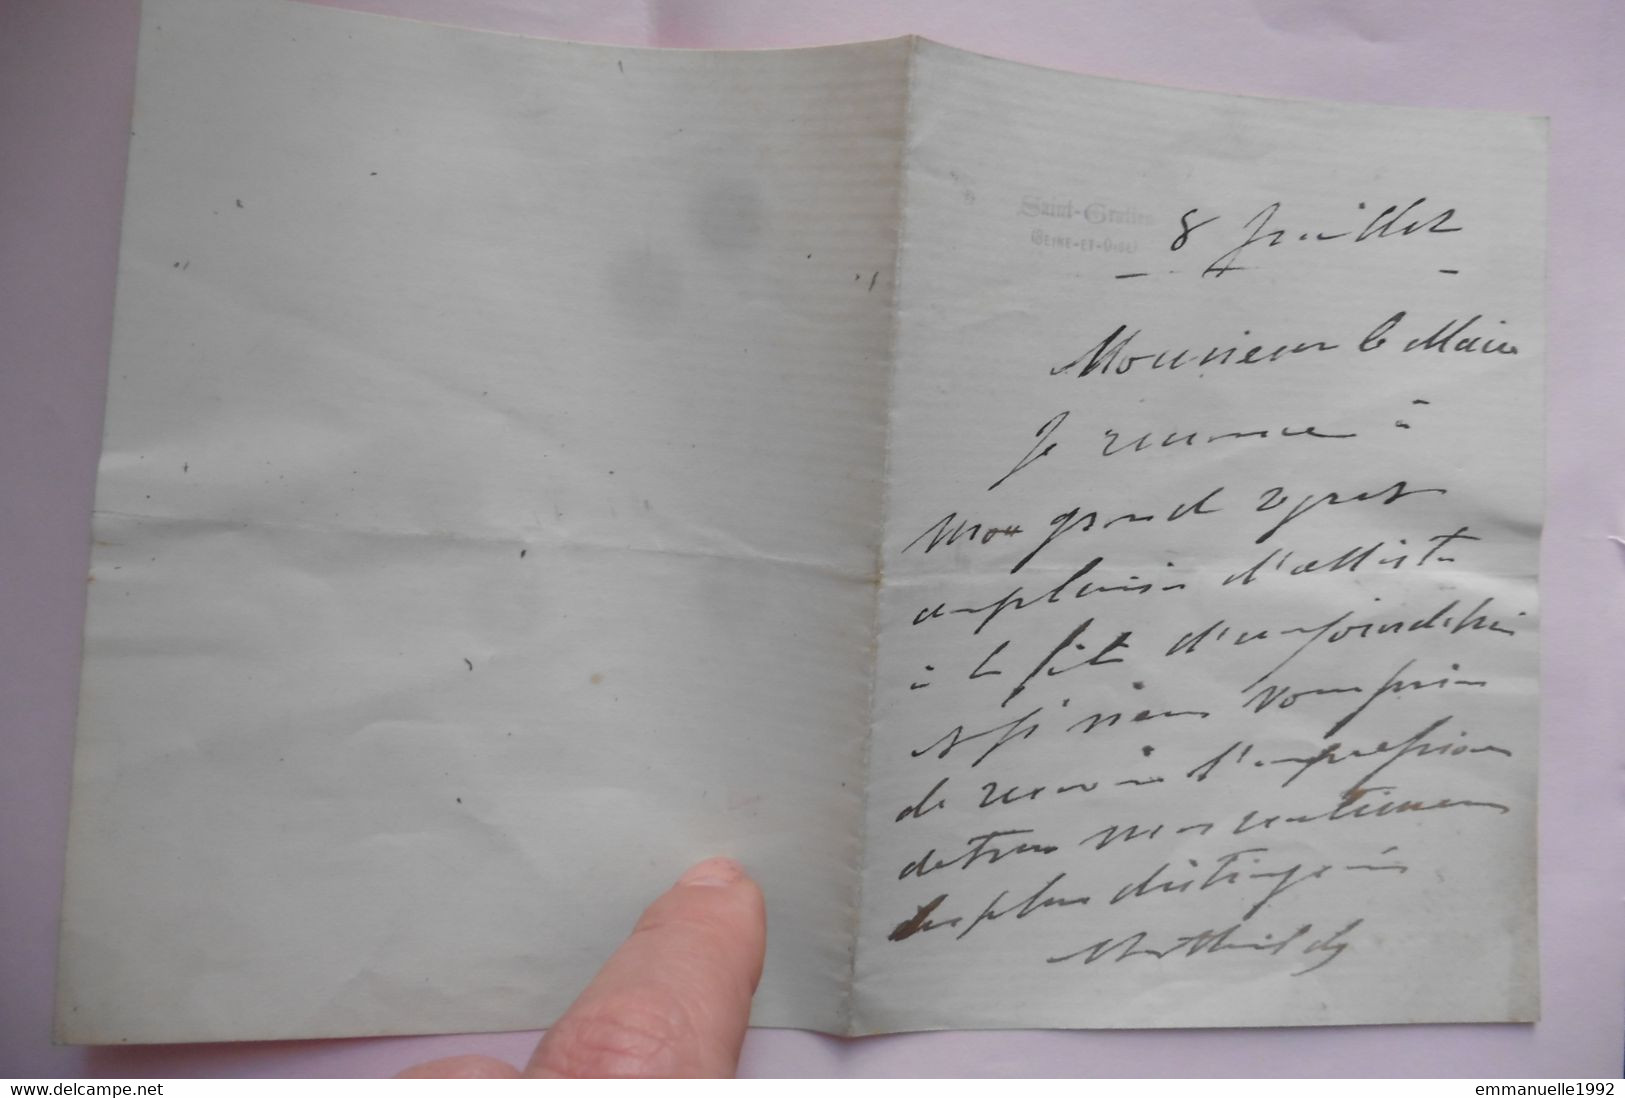 Saint-Gratien
(SEINE-ET-OISE)
8 Juillet
Monsieur le Maire
Je renonce à
mon grand regret
au plaisir d'assister
à la fête d'aujourd'hui
et je viens vous prier
de recevoir l'expression
de tous mes sentiments
les plus distingués
Mathilde
Delcampe.net
emmanuelle1992